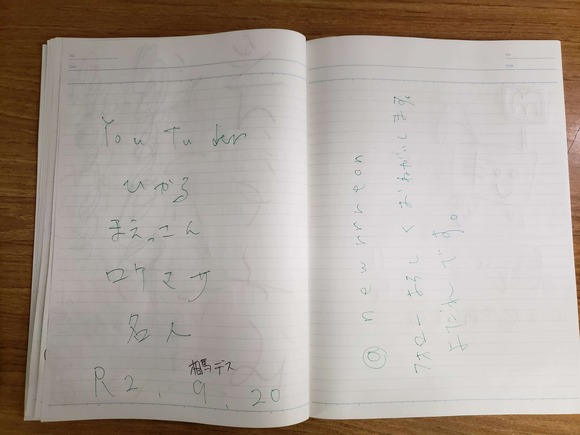 You Tu ber
ひかる
まえっさん
ロケマサ
名人
相馬デス
R2. 9. 20
@ n e w r r r e o n
フォローよろしく おねがいします。
です。